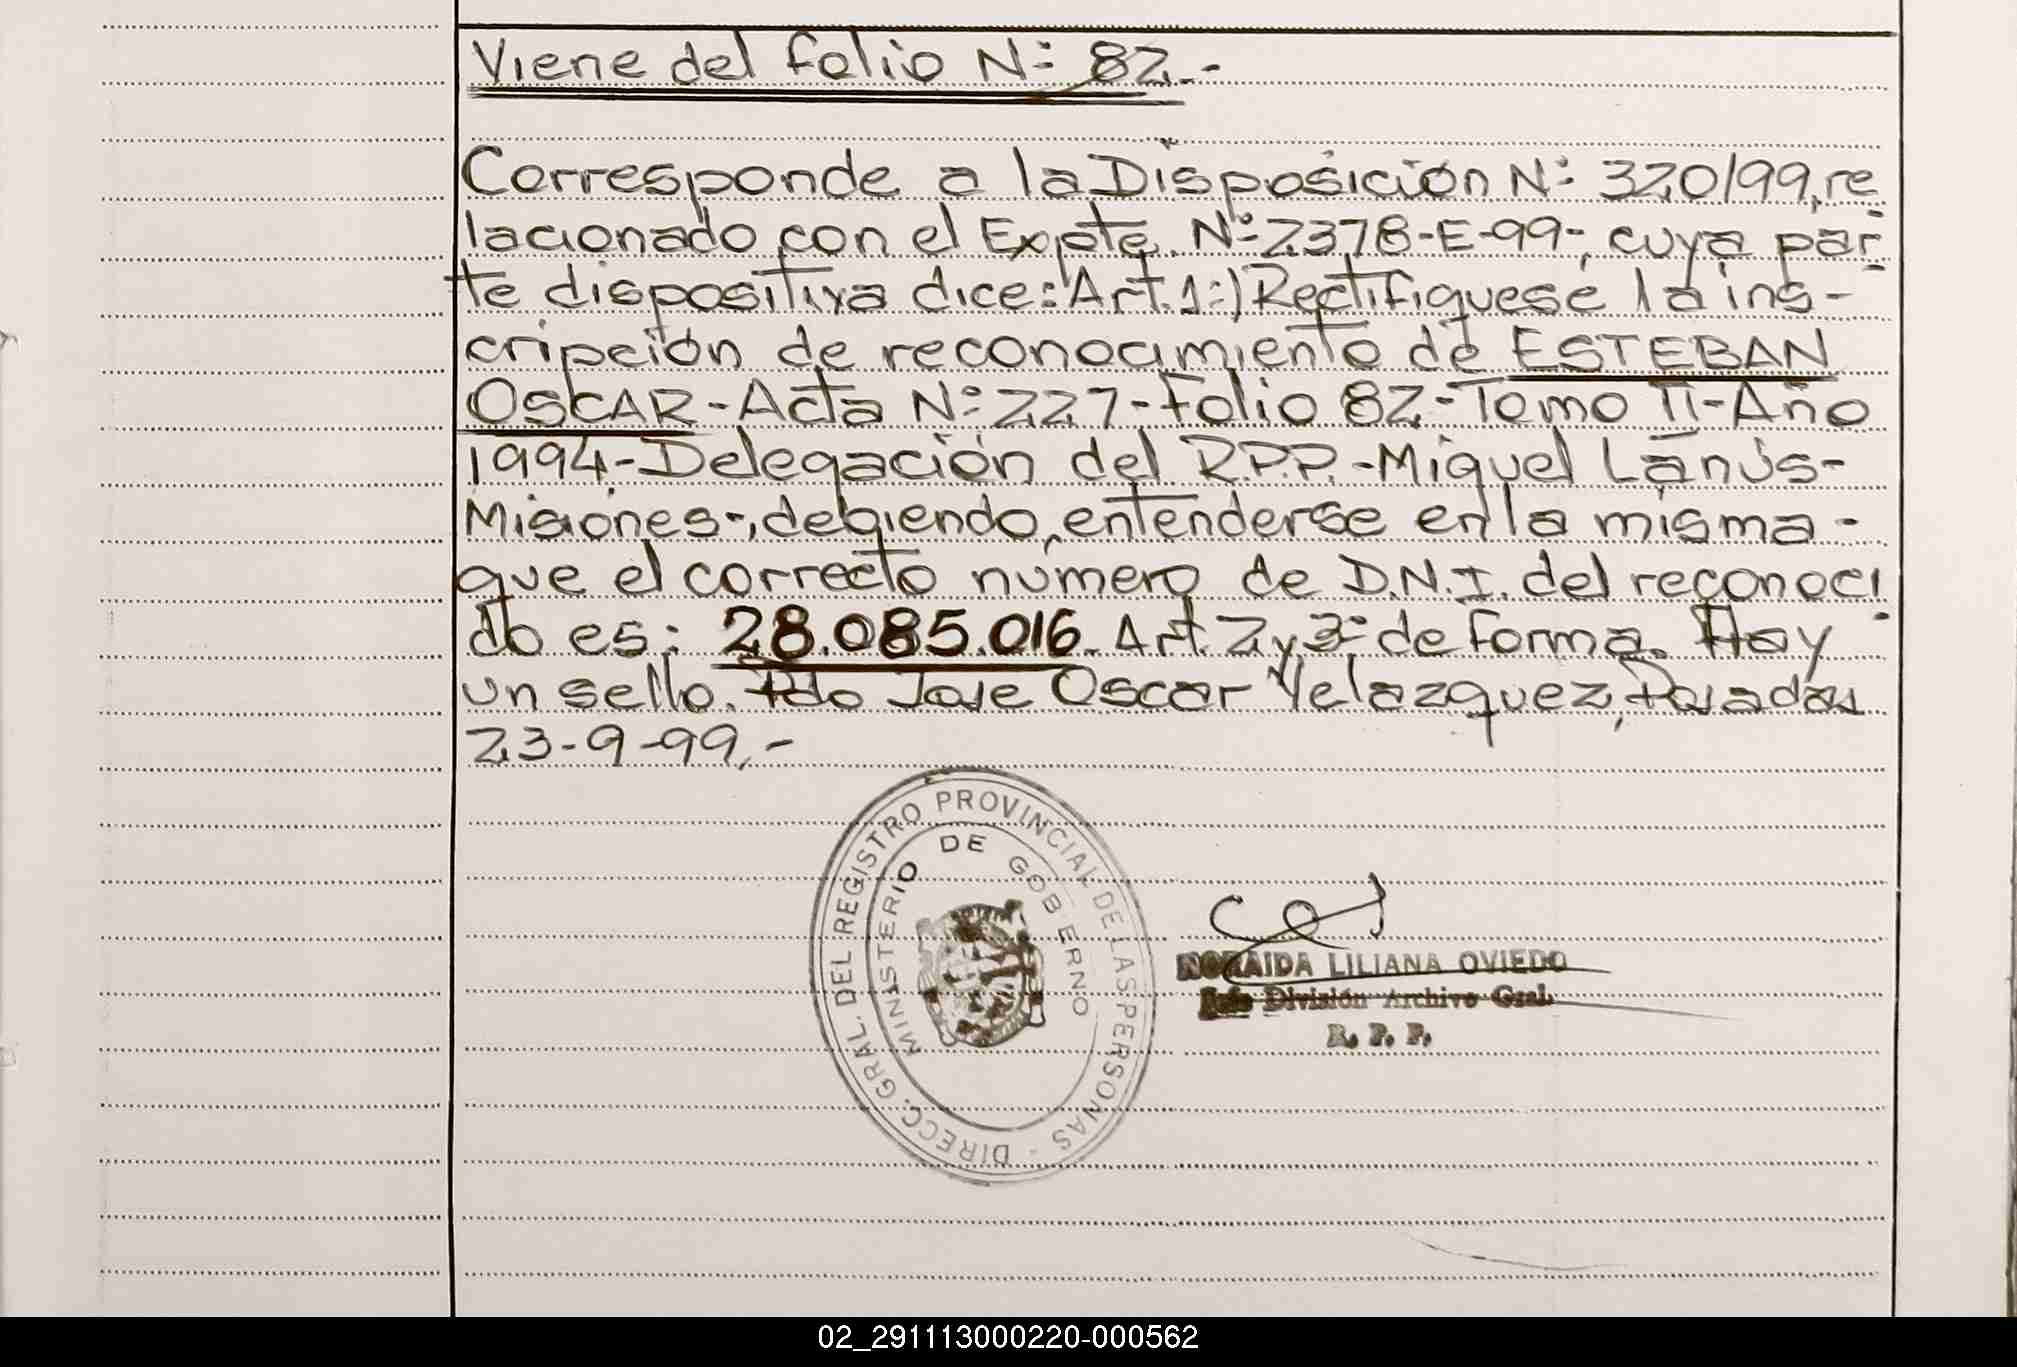 Viene del folio Nº 82.-
Corresponde a la Disposición Nº 320/99, re
lacionado con el Expte. Nº 2378-E-99-, cuya par
te dispositiva dice: Art. 1º) Rectifiquese la ins-
cripción de reconocimiento de ESTEBAN
OSCAR - Acta Nº 227 - Folio 82 - Tomo II - Año
1994 - Delegación del R.P.P. - Miguel Lanús -
Misiones -, debiendo entenderse en la misma -
que el correcto numero de D.N.I. del reconoci
do es: 28.085.016. Art. 2 y 3º de forma. Hay
un sello. Fdo Jose Oscar Velazquez, Posadas
23-9-99.-
DIRECC. GRAL. DEL REGISTRO PROVINCIAL DE LAS PERSONAS -
MINISTERIO DE GOBIERNO
NORAIDA LILIANA OVIEDO
Jefe División Archivo Gral.
R. P. P.
02_291113000220-000562